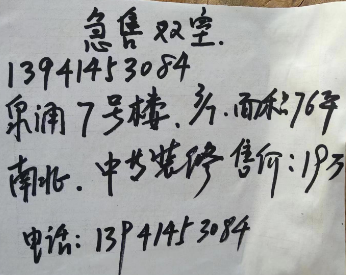 急售双室.
13941453084
泉涌7号楼.3/7.面积76平
南北.中等装修 售价:19万
电话:13941453084